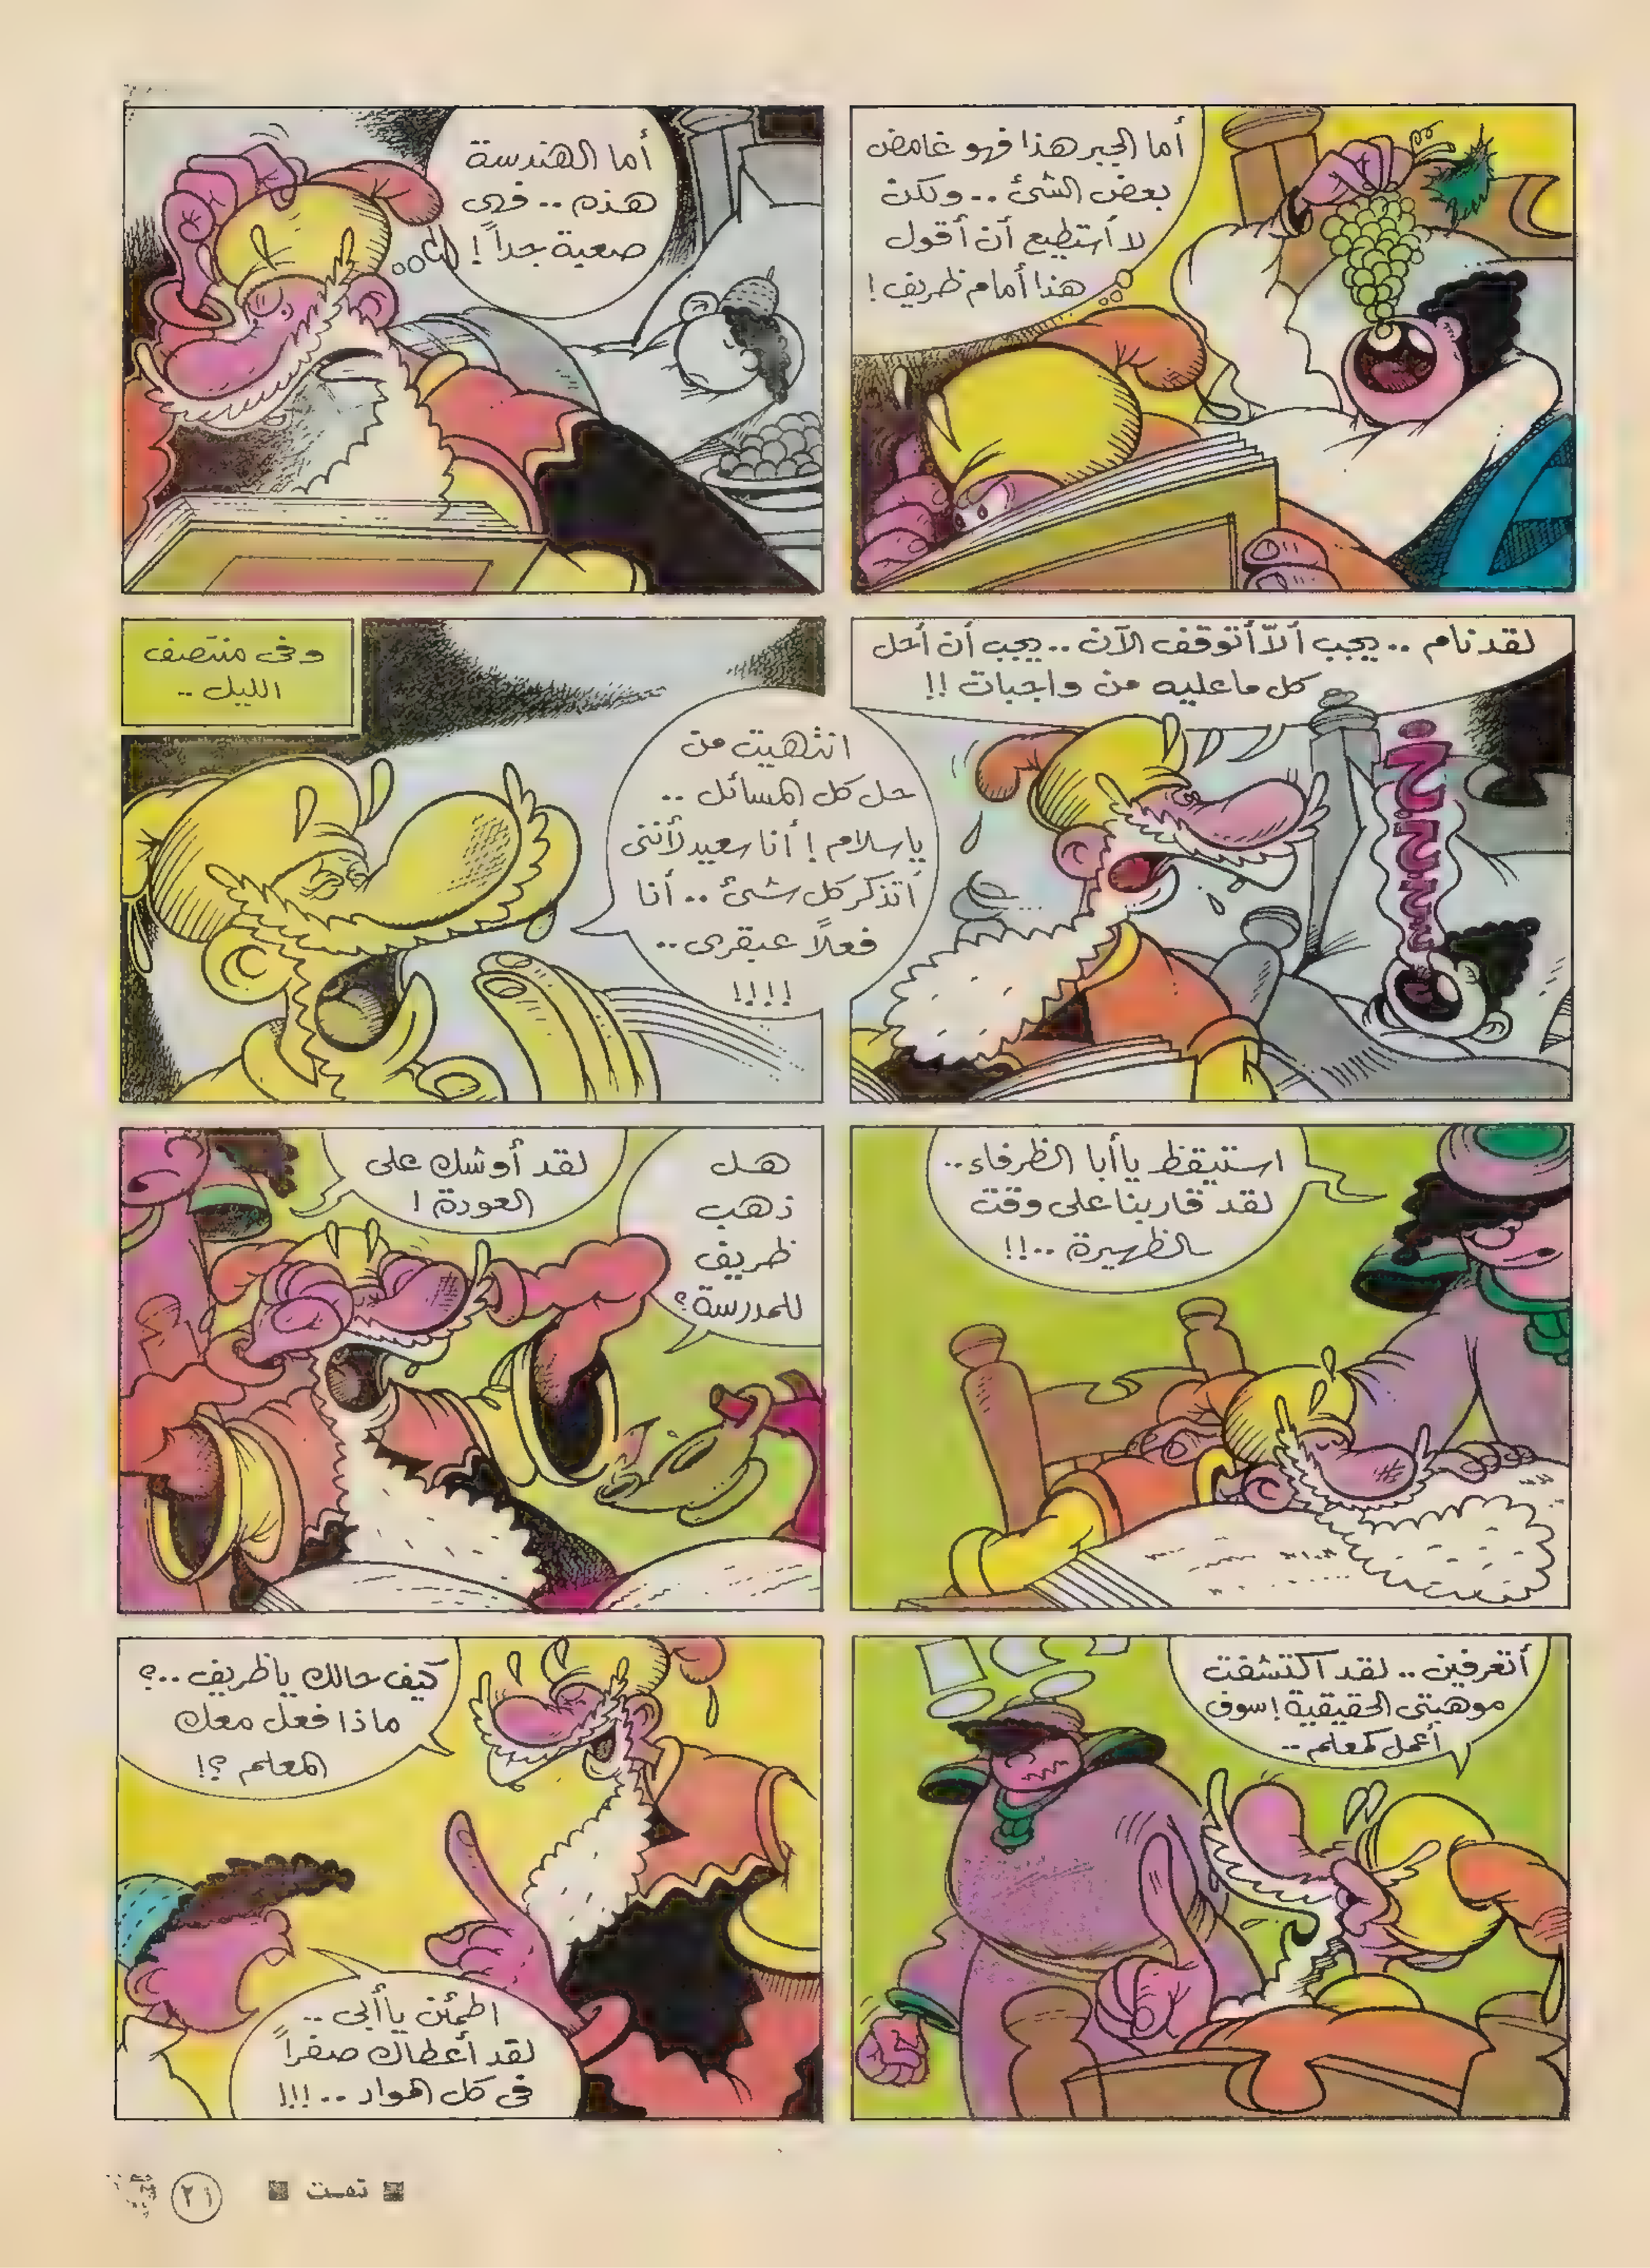 أما الجبر هذا فهو غامض
بعض الشئ .. ولكن
لا أستطيع أن أقول
هذا أمام ظريف !
أما الهندسة
هذه .. فهى
صعبة جداً !
لقد نام .. يجب ألاّ أتوقف الآن .. يجب أن أحل
كل ما عليه من واجبات !!
خ.خ.خ.خ
وفى منتصف
الليل ..
انتهيت من
حل كل المسائل ..
ياسلام ! أنا سعيد لأننى
أتذكر كل شئ .. أنا
فعلاً عبقرى ..
!!!!
استيقظ يا أبا الظرفاء ..
لقد قاربنا على وقت
الظهيرة ..!!
هل
ذهب
ظريف
للمدرسة ؟
لقد أوشك على
العودة !
أتعرفين .. لقد اكتشفت
موهبتى الحقيقية ! سوف
أعمل كمعلم ..
كيف حالك يا ظريف ..؟
ماذا فعل معك
المعلم ؟!
اطمئن يا أبى ..
لقد أعطاك صفراً
فى كل المواد ..!!!
تمت
٢١